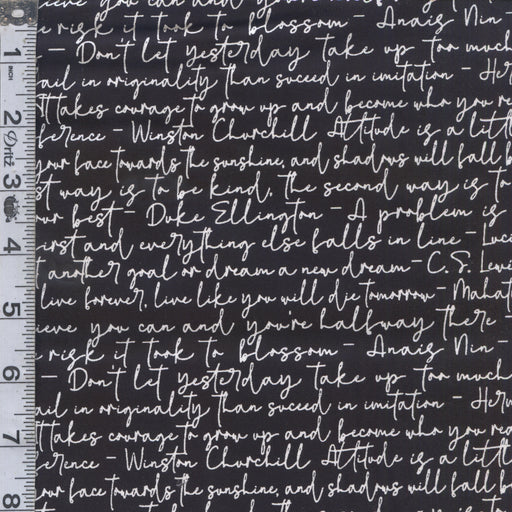 ieve you can and you're halfway
risk it took to blossom - Anais Nin -
- Don't let yesterday take up too much
ail in originality than succeed in imitation - Her
It takes courage to grow up and become who you re
ference - Winston Churchill Attitude is a littl
your face towards the sunshine, and shadows will fall b
st way is to be kind, the second way is to
ur best - Duke Ellington - A problem is
irst and everything else falls in line - Luci
t another goal or dream a new dream - C.S. Lewi
live forever, live like you will die tomorrow - Mahat
ieve you can and you're halfway there -
risk it took to blossom - Anais Nin -
- Don't let yesterday take up too much
ail in originality than succeed in imitation - Herm
It takes courage to grow up and become who you rea
ference - Winston Churchill Attitude is a little
our face towards the sunshine, and shadows will fall b
1 INCH 2 Dritz 3 4 5 6 7 8